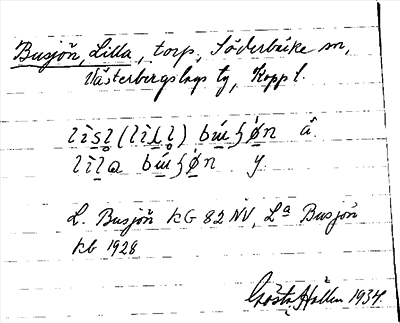 Busjön, Lilla, torp, Söderbärke sn,
Västerbergslags tg, Koppl.
lìsl (lìll) bú ʒøn ä.
lìla bú ʒøn y.
L. Busjön KG 82 NV, La Busjön
kb 1928
Gösta Hallén 1934.